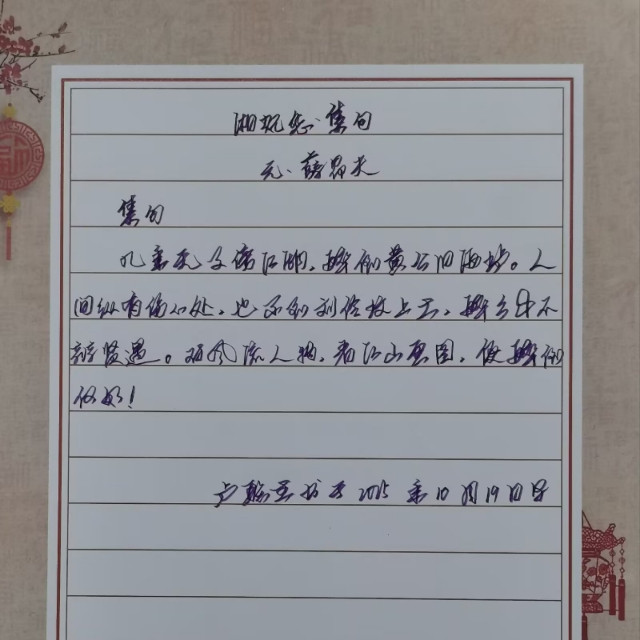 湘妃怨·集句
元·薛昂夫
集句
几年无事傍江湖，醉倒黄公旧酒垆。人
间纵有伤心处，也不到刘伶坟上土，醉乡中不
辨贤愚。对风流人物，看江山画图，便醉倒
何如！
卢书于2025年10月19日